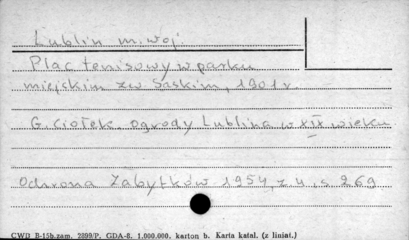 Lublin m. woj.
Plac tenisowy w parku
miejskim zw. Saskim, 1901 r.
G. Ciołek, Ogrody Lublina w XIX wieku
Ochrona Zabytków 1954, z 4, s. 269
CWD B-15b.zam. 2899/P. GDA-8. 1.000.000. karton b. Karta katal. (z liniat.)